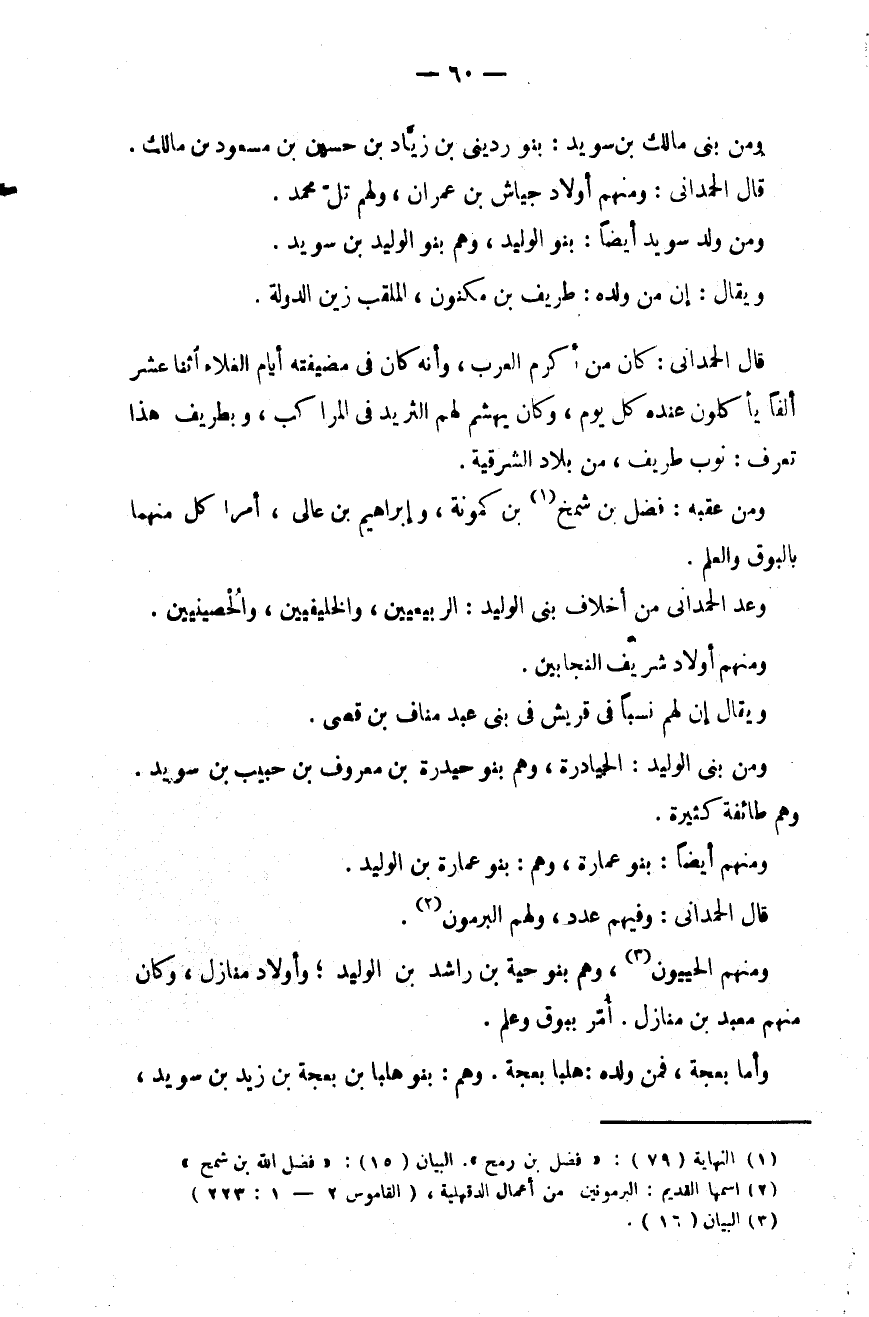 — ٦٠ —
ومن بنى مالك بن سويد : بنو ردينى بن زيَّاد بن حسين بن مسعود بن مالك .
قال الحمدانى : ومنهم أولاد جياش بن عمران ، ولهم تلّ محمد .
ومن ولد سويد أيضاً : بنو الوليد ، وهم بنو الوليد بن سويد .
ويقال : إن من ولده : طريف بن مكنون ، الملقب زين الدولة .
قال الحمدانى : كان من أكرم العرب ، وأنه كان فى مضيفته أيام الغلاء أثنا عشر
ألفاً يأكلون عنده كل يوم ، وكان يهشم لهم الثريد فى المراكب ، وبطريف هذا
تعرف : نوب طريف ، من بلاد الشرقية .
ومن عقبه : فضل بن شمخ (١) بن كمونة ، وإبراهيم بن عالى ، أمرا كل منهما
بالبوق والعلم .
وعد الحمدانى من أخلاف بنى الوليد : الربيعيين ، والخليفيين ، والُحْصينيين .
ومنهم أولاد شريّف النجابين .
ويقال إن لهم نسباً فى قريش فى بنى عبد مناف بن قصى .
ومن بنى الوليد : الحيادرة ، وهم بنو حيدرة بن معروف بن حبيب بن سويد .
وهم طائفة كثيرة .
ومنهم أيضاً : بنو عمارة ، وهم : بنو عمارة بن الوليد .
قال الحمدانى : وفيهم عدد ، ولهم البرمون (٢) .
ومنهم الحييون (٣) ، وهم بنو حية بن راشد بن الوليد ؛ وأولاد منازل ، وكان
منهم معبد بن منازل . أُمّر ببوق وعلم .
وأما بعجة ، فمن ولده : هلبا بعجة . وهم : بنو هلبا بن بعجة بن زيد بن سويد ،
(١) النهاية ( ٧٩ ) : « فضل بن رمح ». البيان ( ١٥ ) : « فضل الله بن شمخ »
(٢) اسمها القديم : البرمونين من أعمال الدقهلية ، ( القاموس ٢ — ١ : ٢٢٣ )
(٣) البيان ( ١٦ ) .